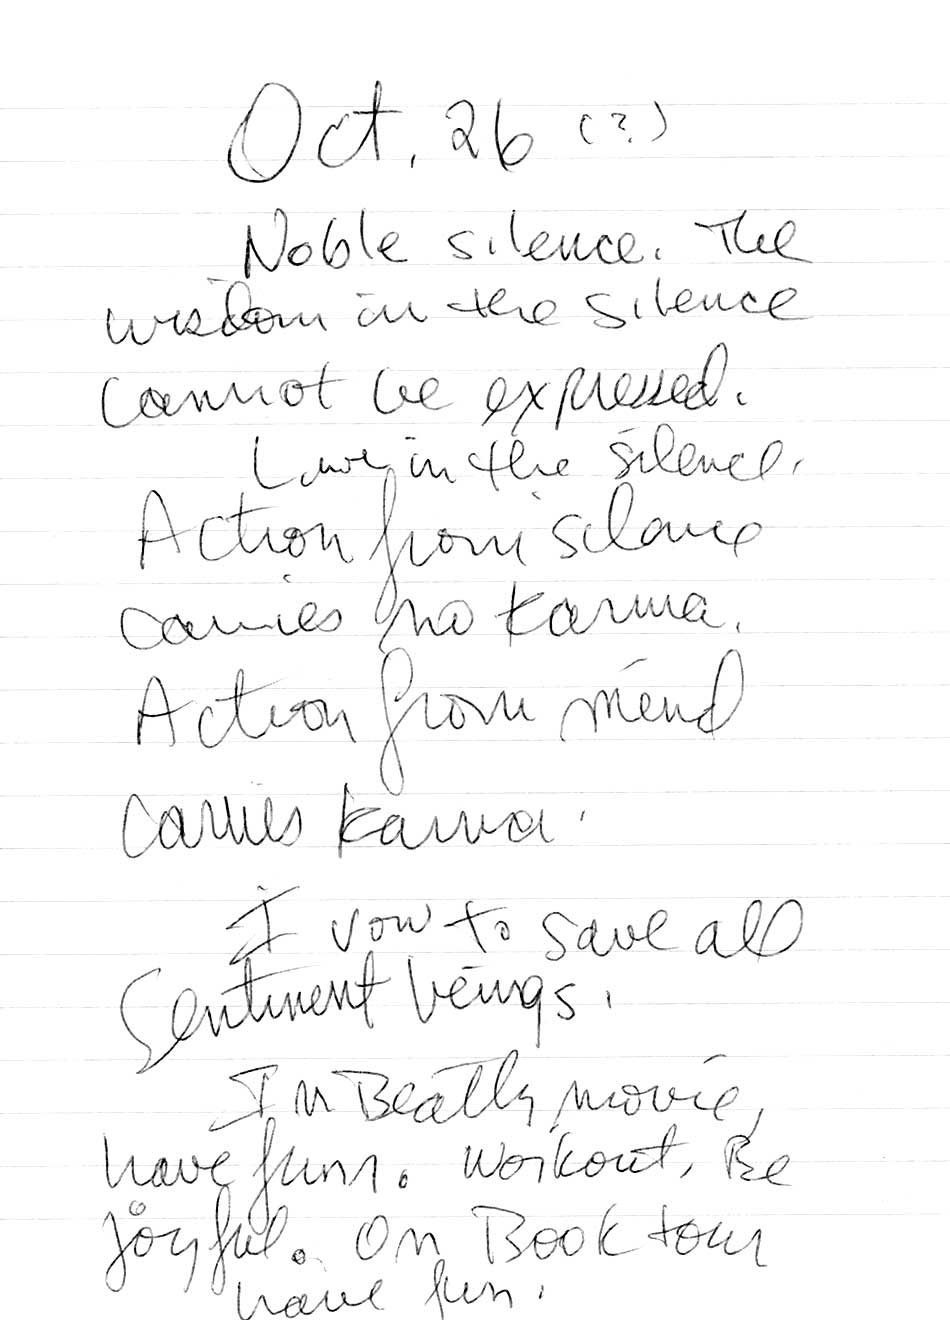 Oct. 26 (?)
Noble silence. The
wisdom in the silence
cannot be expressed.
Live in the silence.
Action from silence
carries no karma.
Action from mind
carries karma.
I vow to save all
Sentinent beings.
In Beatty movie,
have fun. Workout. Be
joyful. On Book tour
have fun.